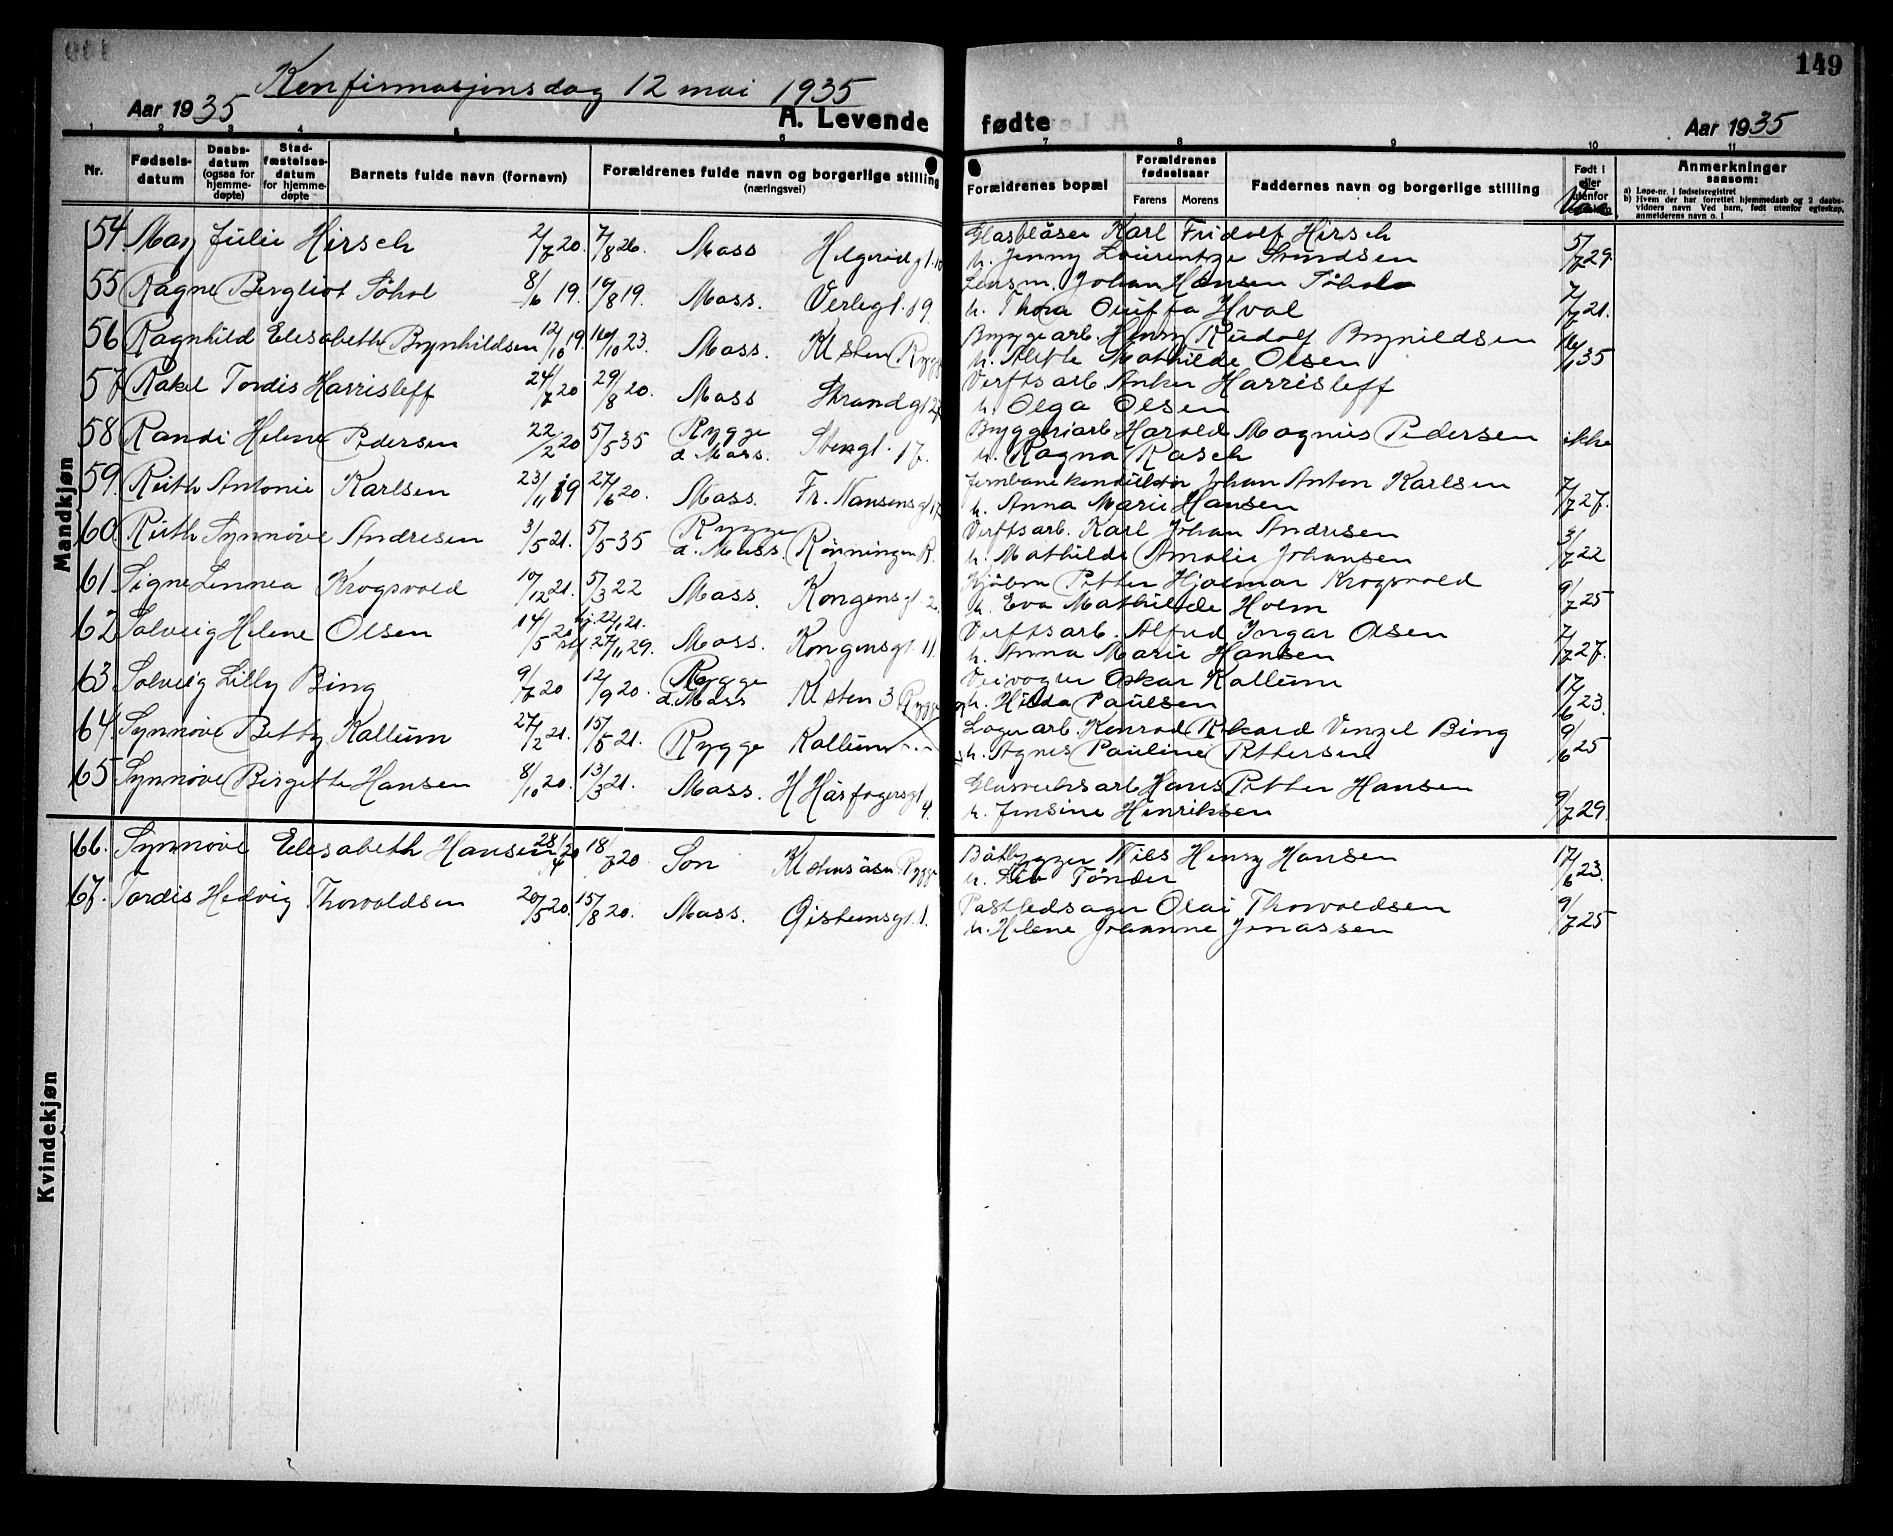 149
Konfirmasjonsdag 12 mai 1935
Aar 1935
A. Levende
fødte
Aar 1935
1 2 3 4 5 6 7 8 9 10 11
Nr.
Fødsels-
datum
Daabs-
datum
(ogsaa for
hjemme-
døpte)
Stad-
fæstelses-
datum
for hjemme-
døpte
Barnets fulde navn (fornavn)
Forældrenes fulde navn og borgerlige stilling
(næringsvei)
Forældrenes bopæl
Forældrenes
fødselsaar
Farens Morens
Faddernes navn og borgerlige stilling
Født i
eller
utenfor
Vac.
Anmerkninger
saasom:
a) Løpe-nr. i fødselsregistret
b) Hvem der har forrettet hjemmedaab og 2 daabs-
vidners navn Ved barn, født utenfor egteskap,
anmelderens navn o. l
Mandkjøn
Kvindekjøn
54 May Julie Hirsch 2/7 20. 7/8 26. Moss Helgerødgt. 10 Glasblåser Karl Fridolf Hirsch
h. Jenny Laurentze Svendsen 5/7 29.
55 Ragne Bergliot Søhol 8/6 19. 19/8 19. Moss. Verlegt. 19. Lensm. Johan Hansen Søhol
h. Thora Oluffa Hval 7/7 21.
56 Ragnhild Elisabeth Brynhildsen 12/10 19. 16/10 23. Moss. Kl sten Rygge Bryggearb. Henry Rudolf Brynildsen
h. Alette Mathilde Olsen 16/1 35
57 Rakel Tordis Harrisleff 24/7 20 29/8 20. Moss Strandgt 27 Verftsarb Anker Harrisleff
h. Olga Olsen
58 Randi Helene Pedersen 22/2 20 5/5 35 Rygge d. Moss. Stengt. 17. Bryggeriarb Harald Magnus Pedersen
h. Ragna Rasch ikke
59. Ruth Antonie Karlsen 23/11 19 27/6 20. Moss. Fr. Nansensgt 17 Jernbanekonduktør Johan Anton Karlsen
h. Anna Marie Hansen 7/7 27.
60 Ruth Synnøve Andresen 3/5 21. 5/5 35 Rygge d. Moss. Rønningen R. Verftsarb. Karl Johan Andresen
h. Mathilde Amalie Johansen 3/7 22
61 Signe Linnea Krogsvold 10/12 21. 5/3 22 Moss. Kongensgt. 2. Kjøbm Petter Hjalmar Krogsvold
h. Eva Mathilde Holm 9/7 25
62 Solveig Helene Olsen 14/5 20 hj. 22/1 21. stf 27/11 29. Moss. Kongensgt. 11 Verftsarb. Alfred Ingar Olsen
h. Anna Marie Hansen 7/7 27.
63 Solveig Lilly Bing 9/7 20 12/9 20. Rygge d. Moss Kl sten 3 Rygge Veivogter Oskar Kallum
h. Hilda Paulsen 17/6 23.
64 Synnøve Betty Kallum 27/2 21. 15/5 21. Rygge Kallum -.- Lagerarb. Konrad Rikard Vinzel Bing
h. Agnes Pauline Pettersen 9/6 25
65 Synnøve Birgitte Hansen 8/10 20. 13/3 21. Moss. H Hårfagersgt 4. Glasverksarb Hans Petter Hansen
h. Jensine Henriksen 9/7 29.
66. Synnøve Elisabeth Hansen 28/4 20 18/7 20. Son Kl stensåsen Rygge Båtbygger Nils Henry Hansen
h. Liv Tønder 17/6 23.
67. Tordis Hedvig Thorvaldsen 20/5 20. 15/8 20. Moss. Gistensgt. 1. Postledsager Olai Thorvaldsen
h. Helene Johanne Jonassen 9/7 25